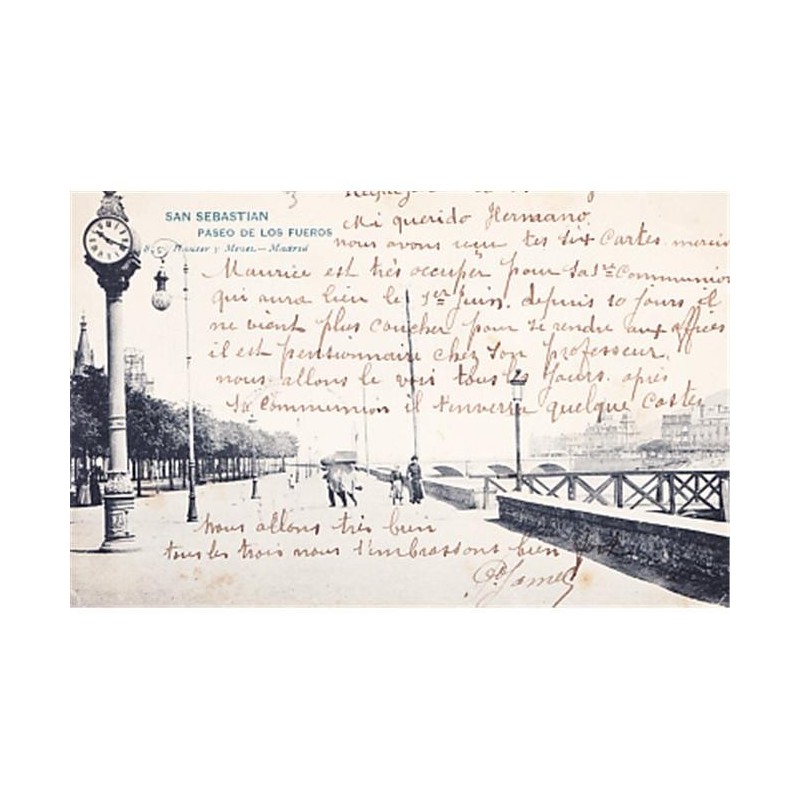 SAN SEBASTIAN
PASEO DE LOS FUEROS
Hauser y Menet.—Madrid
Mi querido Hermano,
nous avons reçu tes six Cartes. merci
Maurice est très occuper pour sa 1re Communion
qui aura lieu le 1er Juin. depuis 10 jours il
ne vient plus coucher pour se rendre aux offices
il est pensionnaire chez son professeur,
nous allons le voir tous les jours. après
sa communion il t'enverra quelque Cartes
nous allons très bien
tous les trois nous t'embrassons bien fort